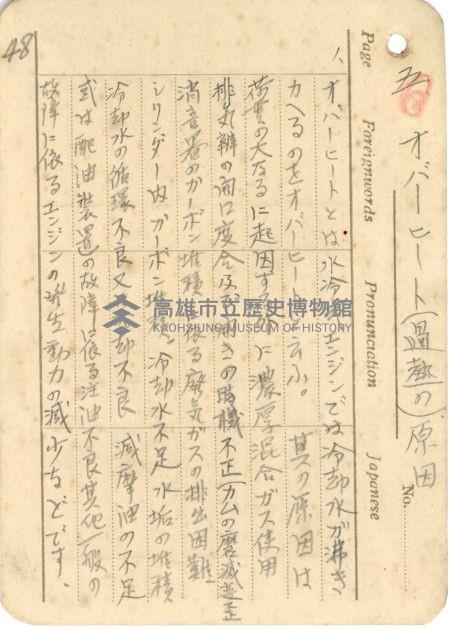 48
Page
Foreignwords
Pronunciation
Japanese
No.
五 オバーヒート(過熱の)原因
1、オバーヒートとは水冷式エンジンでは冷却水が沸き
カヘるのをオバーヒートと云ふ。其の原因は
荷貫の大なるに起因する外に濃厚混合ガス使用
排気弁の開口度合及び開きの時機不正カムの磨滅
消音器のカーボン堆積に依る廃気ガスの排出困難
シリンダー内カーボン堆積、冷却水不足水垢の堆積
冷却水の循環不良又は冷却不良 減摩油の不足
式は配油装置の故障に依る注油不良其他一般の
故障に依るエンジンの発生動力の減少などです、
高雄市立歷史博物館
KAOHSIUNG MUSEUM OF HISTORY